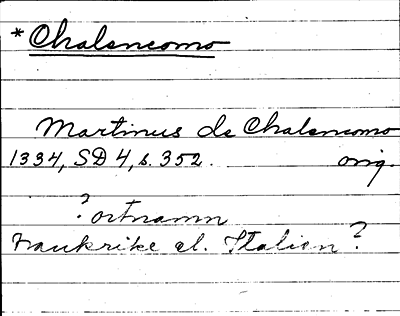 * Chalencomo
Martinus de Chalencomo
1334, SD 4, s. 352. orig.
? ortnamn
Frankrike el. Italien ?